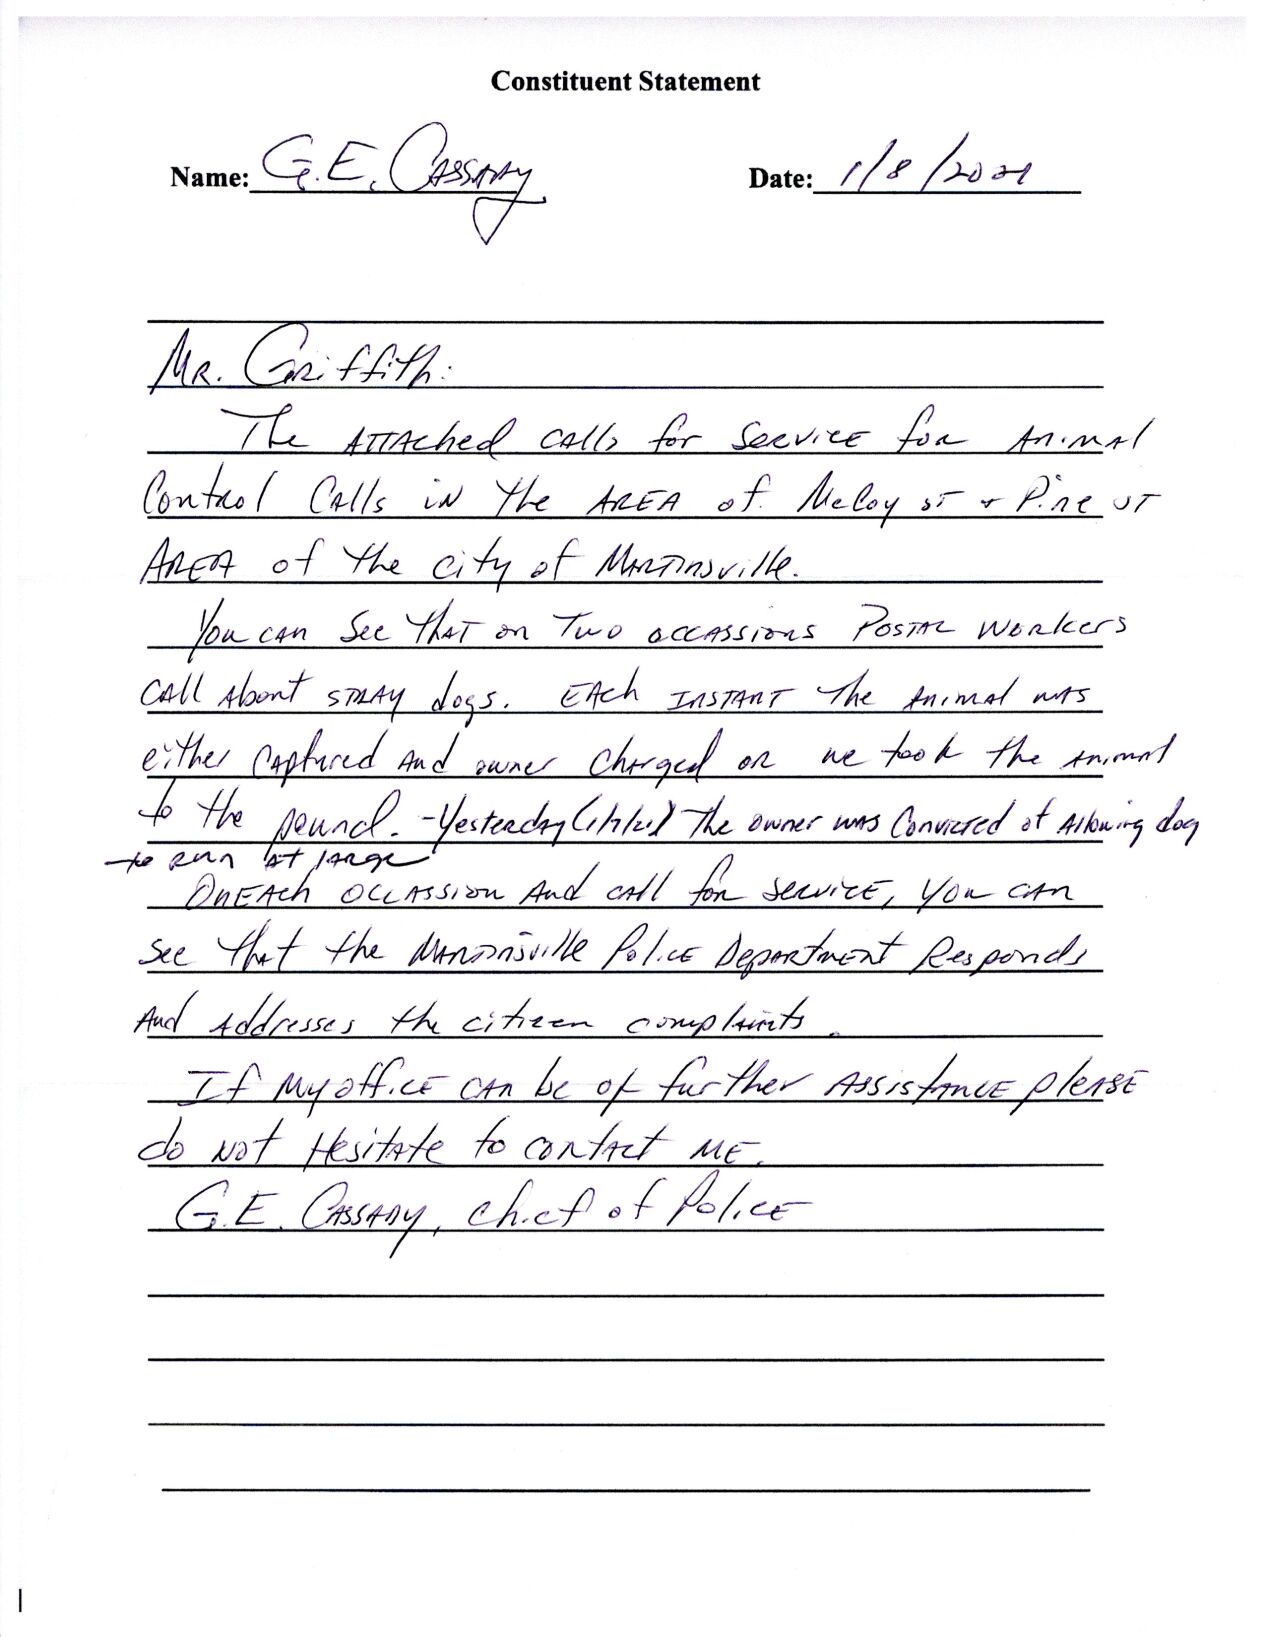 Constituent Statement
Name: G.E. Cassady Date: 1/8/2021
Mr. Griffith:
The attached calls for service for animal
control calls in the area of McCoy St + Pine St
area of the city of Martinsville.
You can see that on two occassions postal workers
call about stray dogs. Each instant the animal was
either captured and owner charged or we took the animal
to the pound. - Yesterday (1/7/21) the owner was convicted of allowing dog
to run at large
On each occassion and call for service, you can
see that the Martinsville Police Department responds
and addresses the citizen complaints.
If my office can be of further assistance please
do not hesitate to contact me.
G.E. Cassady, Chief of Police